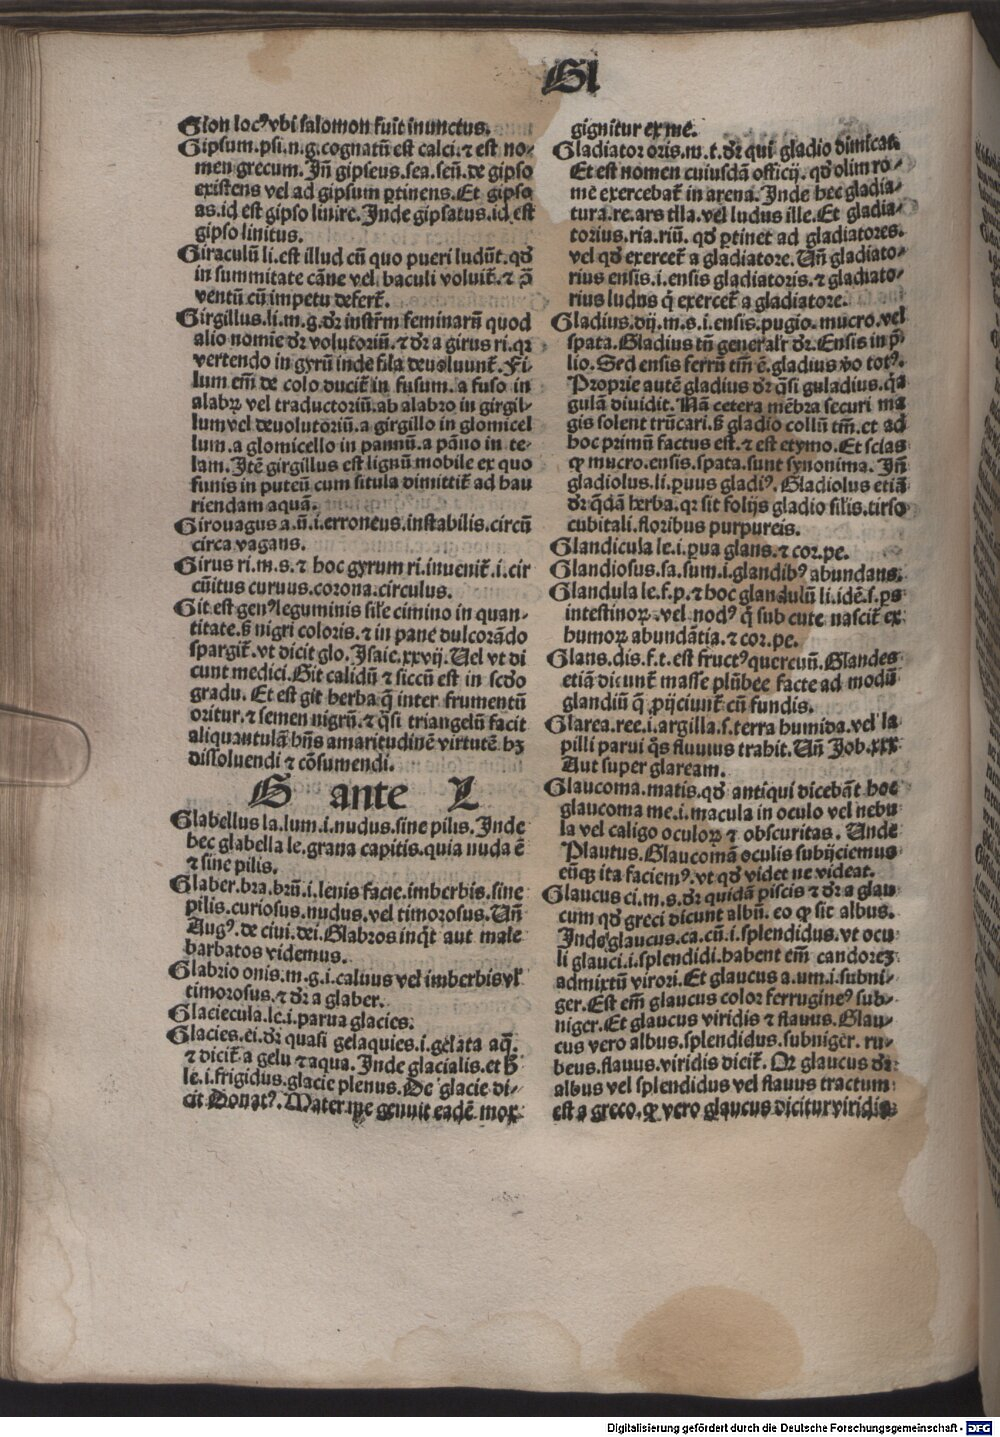 Gl
Gion locꝰ vbi salomon fuit inunctus.
Gipsum.psi.n.g.cognatū est calci.⁊ est no-
men grecum. Jn̄ gipseus.sea.seū.de gipso
existens vel ad gipsum ꝑtinens. Et gipso
as.id est gipso linire. Jnde gipsatus.id est
gipso linitus.
Giraculū li.est illud cū quo pueri ludūt.qđ
in summitate cāne vel baculi voluit̄.⁊ ꝑ̄
ventū cū impetu defert̄.
Girgillus.li.m.g.dr̄ instrm̄ feminarū quod
alio nomīe dr̄ volutoriū.⁊ dr̄ a girus ri.qꝛ
vertendo in gyrū inde fila deuoluunt̄. Fi-
lum em̄ de colo ducit̄ in fusum.a fuso in
alabꝝ vel traductoriū.ab alabro in girgil-
lum vel deuolutoriū.a girgillo in glomicel
lum.a glomicello in pannū.a pāno in te-
lam. Jtē girgillus est lignū mobile ex quo
funis in puteū cum situla dimittit̄ ad hau
riendam aquā.
Girouagus a.ū.i.erroneus.instabilis.circū
circa vagans.
Girus ri.m.s.⁊ hoc gyrum ri.inuenit̄.i.cir
cūitus curuus.corona.circulus.
Git est genꝰ leguminis sil'e cimino in quan-
titate.s̄ nigri coloris.⁊ in pane dulcorādo
spargit̄.vt dicit glo. Jsaie.xxvij. Uel vt di
cunt medici. Git calidū ⁊ siccū est in scd̄o
gradu. Et est git herba q̄ inter frumentū
oritur.⁊ semen nigrū.⁊ q̄si triangelū facit
aliquantulā hn̄s amaritudinē virtutē hꝫ
dissoluendi ⁊ cōsumendi.
G ante L
Glabellus la.lum.i.nudus.sine pilis. Jnde
hec glabella le.grana capitis.quia nuda ē
⁊ sine pilis.
Glaber.bra.brū.i.lenis facie.imberbis.sine
pilis.curiosus.nudus.vel timorosus. Un̄
Augꝰ.de ciui.dei. Glabros inq̄t aut male
barbatos videmus.
Glabrio onis.m.g.i.caluus vel imberbis vl'
timorosus.⁊ dr̄ a glaber.
Glaciecula.le.i.parua glacies.
Glacies.ei.dr̄ quasi gelaquies.i.gelata aq̄.
⁊ dicit̄ a gelu ⁊ aqua. Jnde glacialis.et h̄
le.i.frigidus.glacie plenus. De glacie di-
cit Donatꝰ. Mater me genuit eadē mox
gignitur ex me.
Gladiator oris.m.t.dr̄ qui gladio dimicat.
Et est nomen cuiusdā officij. qđ olim ro-
me exercebat̄ in arena. Jnde hec gladia-
tura.re.ars illa.vel ludus ille. Et gladia-
torius.ria.riū. qđ ꝑtinet ad gladiatores.
vel qđ exercet̄ a gladiatore. Un̄ gladiato-
rius ensis.i.ensis gladiatoris.⁊ gladiato-
rius ludus q̄ exercet̄ a gladiatore.
Gladius.dij.m.s.i.ensis.pugio.mucro.vel
spata. Gladius tn̄ generalr̄ dr̄. Ensis in p̄
lio. Sed ensis ferrū tm̄ ē.gladius v̄o totꝰ.
Proprie autē gladius dr̄ q̄si guladius.q̄a
gulā diuidit. Nā cetera mēbra securi ma
gis solent trūcari.s̄ gladio collū tm̄.et ad
hoc primū factus est.⁊ est etymo. Et scias
ꝙ mucro.ensis.spata.sunt synonima. Jn̄
gladiolus.li.ꝑuus gladiꝰ. Gladiolus etiā
dr̄ q̄dā herba.qꝛ sit folijs gladio silis.tirso
cubitali.floribus purpureis.
Glandicula le.i.ꝑua glans.⁊ cor.pe.
Glandiosus.sa.sum.i.glandibꝰ abundans.
Glandula le.f.p.⁊ hoc glandulū li.idē.s.ꝑs
intestinoꝝ.vel nodꝰ q̄ sub cute nascit̄ ex
humoꝝ abundātia.⁊ cor.pe.
Glans.dis.f.t.est fructꝰ quercuū. Glandes
etiā dicunt̄ masse plūbee facte ad modū
glandiū q̄ ꝓijciunt̄ cū fundis.
Glarea.ree.i.argilla.s.terra humida.vel la
pilli parui q̄s fluuius trahit. Un̄ Job.xxx
Aut super glaream.
Glaucoma.matis.qđ antiqui dicebāt hoc
glaucoma me.i.macula in oculo vel nebu
la vel caligo oculoꝝ ⁊ obscuritas. Unde
Plautus. Glaucomā oculis subijciemus
eūqꝫ ita faciemꝰ.vt qđ videt ne videat.
Glaucus ci.m.s.dr̄ quidā piscis ⁊ dr̄ a glau
cum qđ greci dicunt albū. eo ꝙ sit albus.
Jnde glaucus.ca.cū.i.splendidus.vt ocu
li glauci.i.splendidi.habent em̄ candorē
admixtū virori. Et glaucus a.um.i.subni-
ger. Est em̄ glaucus color ferrugineꝰ sub-
niger. Et glaucus viridis ⁊ flauus. Glau-
cus vero albus.splendidus.subniger. ru-
beus.flauus.viridis dicit̄. Qꝛ glaucus dr̄
albus vel splendidus vel flauus tractum
est a greco. ꝙ vero glaucus dicitur viridis
Digitalisierung gefördert durch die Deutsche Forschungsgemeinschaft - DFG